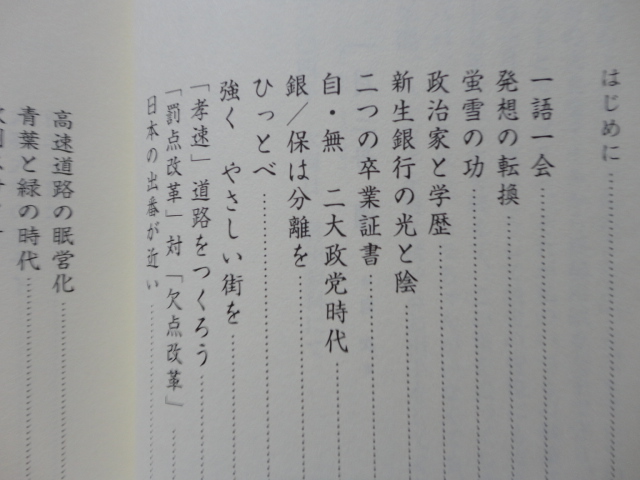 はじめに
一語一会
発想の転換
蛍雪の功
政治家と学歴
新生銀行の光と陰
二つの卒業証書
自・無 二大政党時代
銀/保は分離を
ひっとべ
強く やさしい街を
「孝速」道路をつくろう
「罰点改革」対「欠点改革」
日本の出番が近い
高速道路の眠営化
青葉と緑の時代